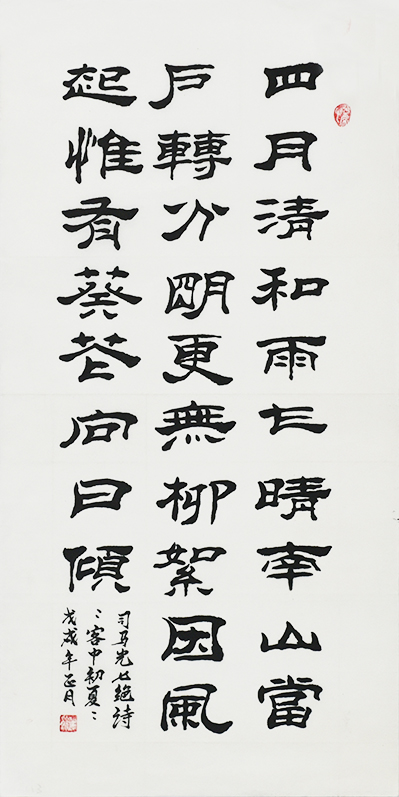 四月清和雨乍晴南山當
戶轉分明更無柳絮因風
起惟有葵花向日傾
司马光七絶詩
〻客中初夏〻
戊戌年正月